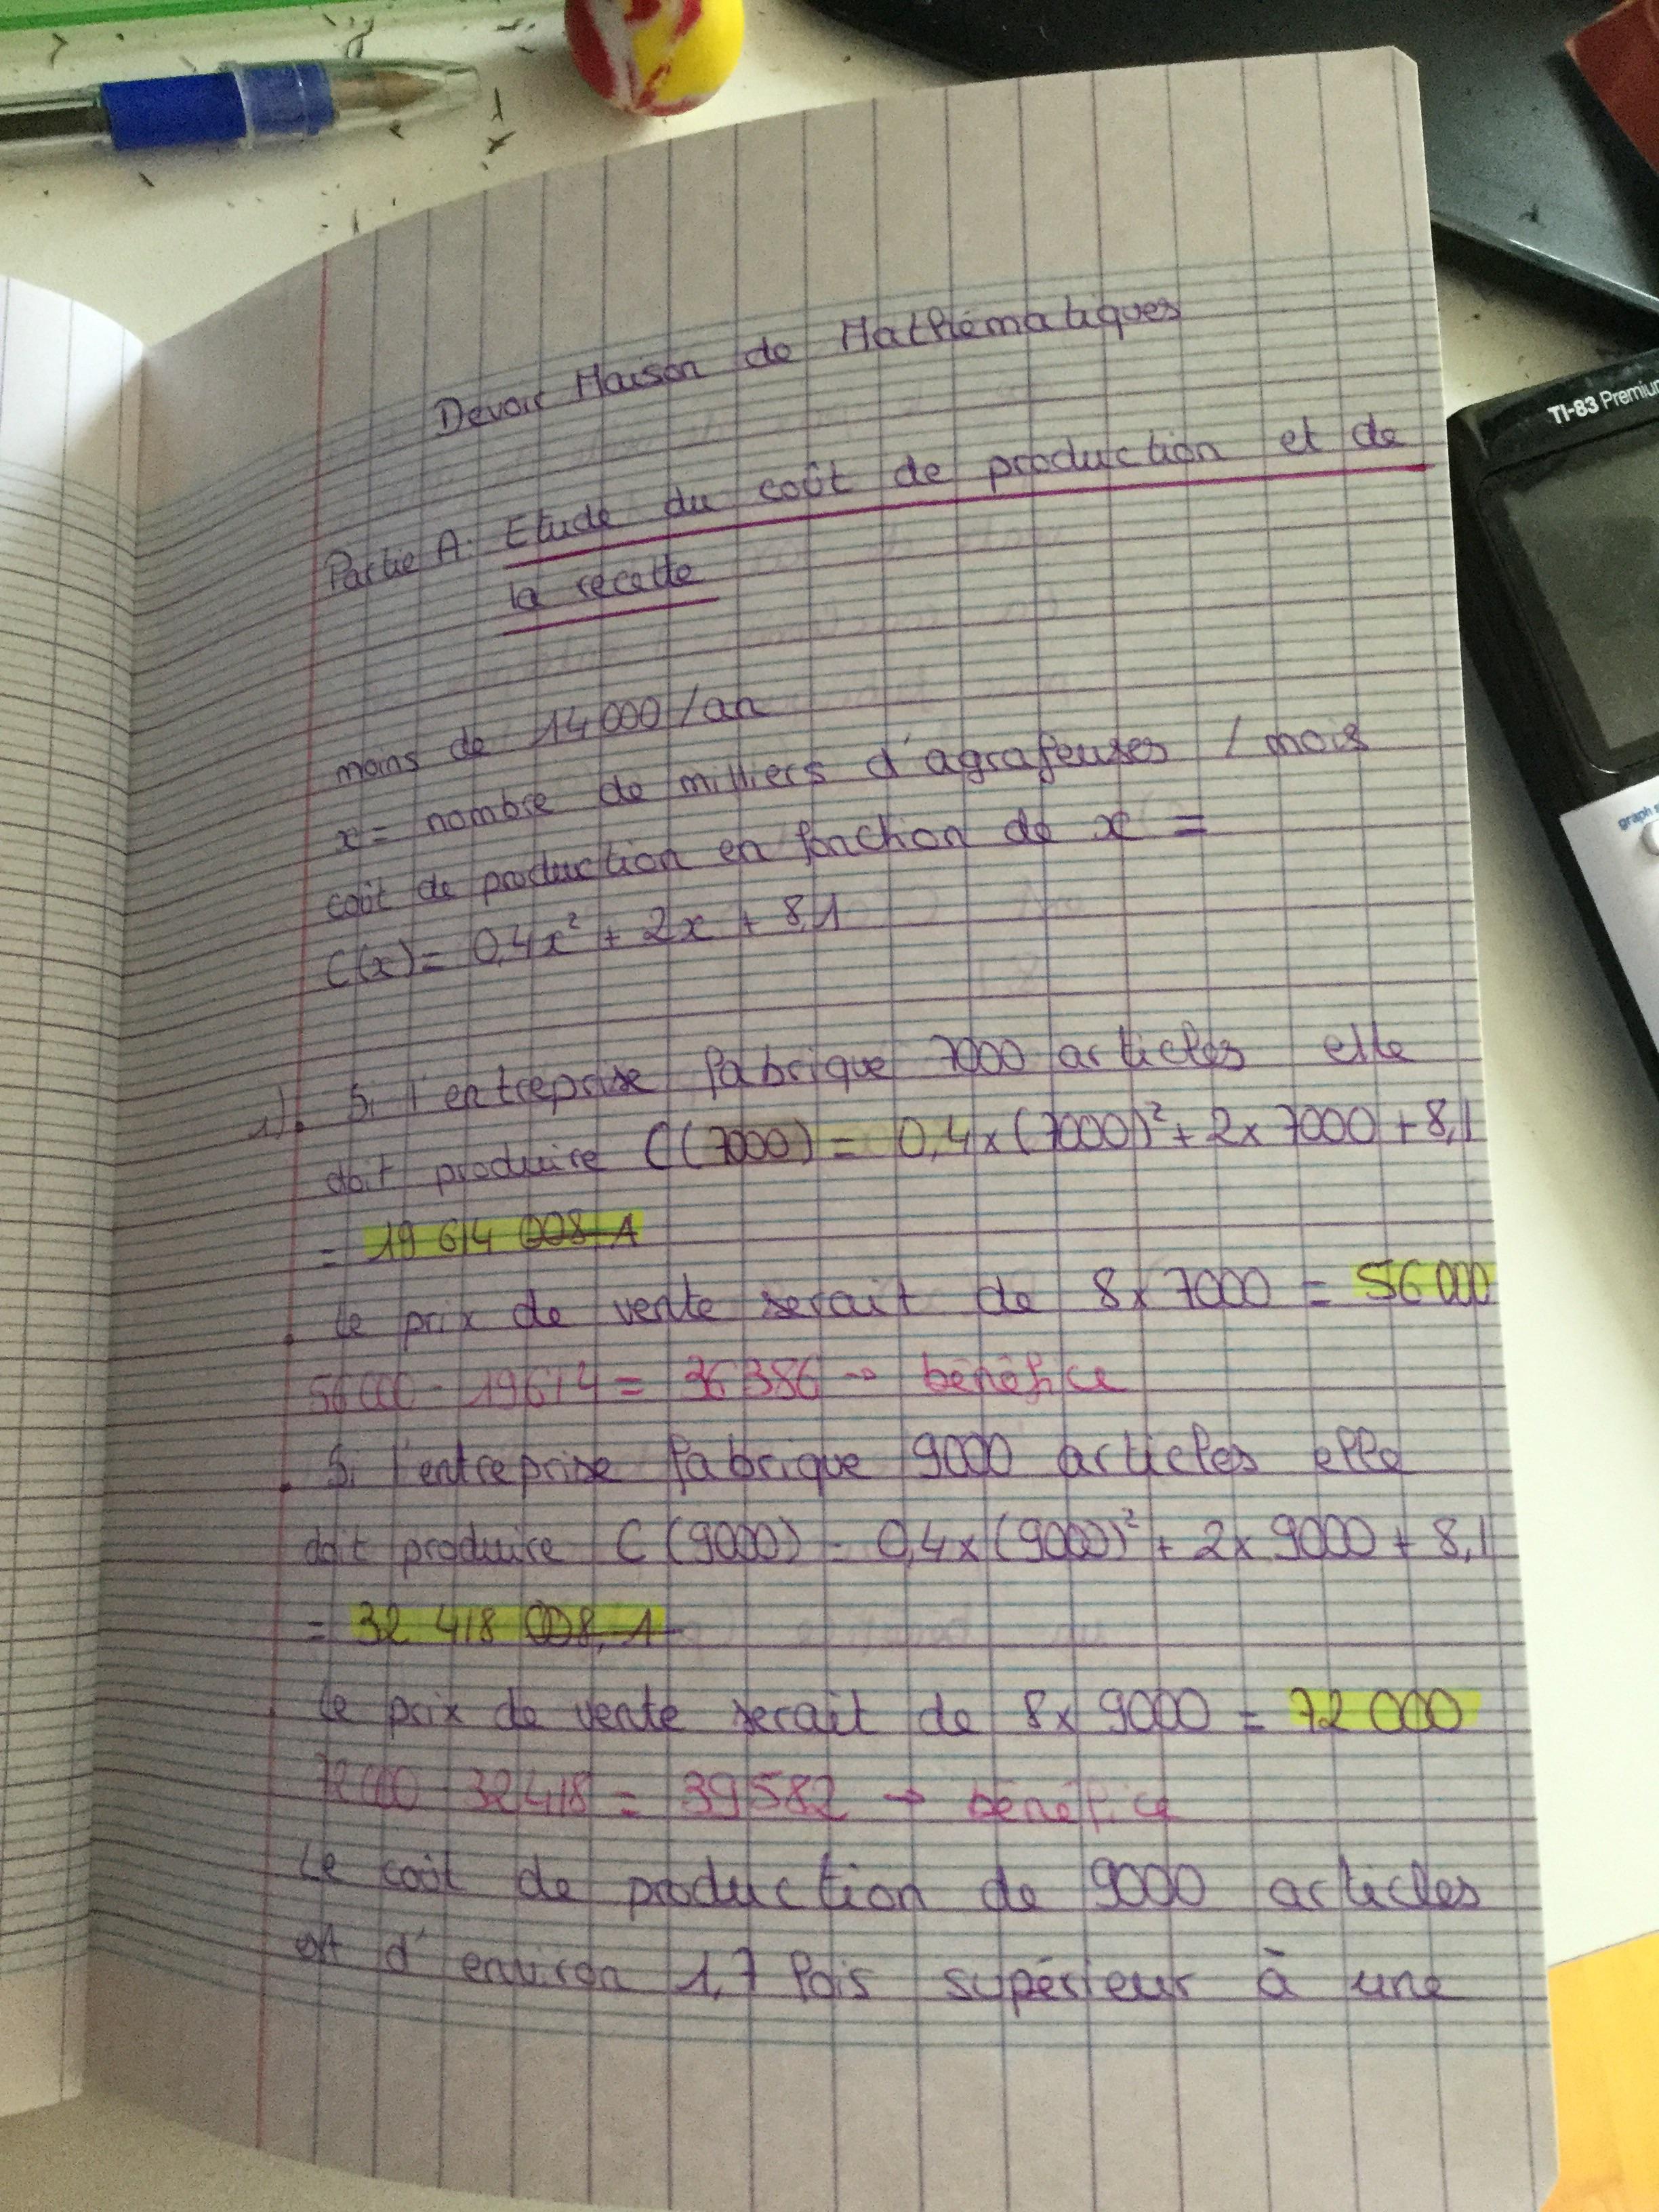 Devoir Maison de Mathématiques
Partie A: Etude du coût de production et de
la recette
moins de 14 000 / an
x = nombre de milliers d'agrafeuses / mois
coût de production en fonction de x =
C(x) = 0,4x² + 2x + 8,1
1). Si l'entreprise fabrique 7000 articles elle
doit produire C(7000) = 0,4 x (7000)² + 2 x 7000 + 8,1
= 19 614 008,1
. Le prix de vente serait de 8 x 7000 = 56 000
56 000 - 19 614 = 36 386 → bénéfice
. Si l'entreprise fabrique 9000 articles elle
doit produire C (9000) = 0,4 x (9000)² + 2 x 9000 + 8,1
= 32 418 008,1
Le prix de vente serait de 8 x 9000 = 72 000
72 000 - 32 418 = 39 582 → bénéfice
Le coût de production de 9000 articles
est d'environ 1,7 fois supérieur à une
TI-83 Premium
graph